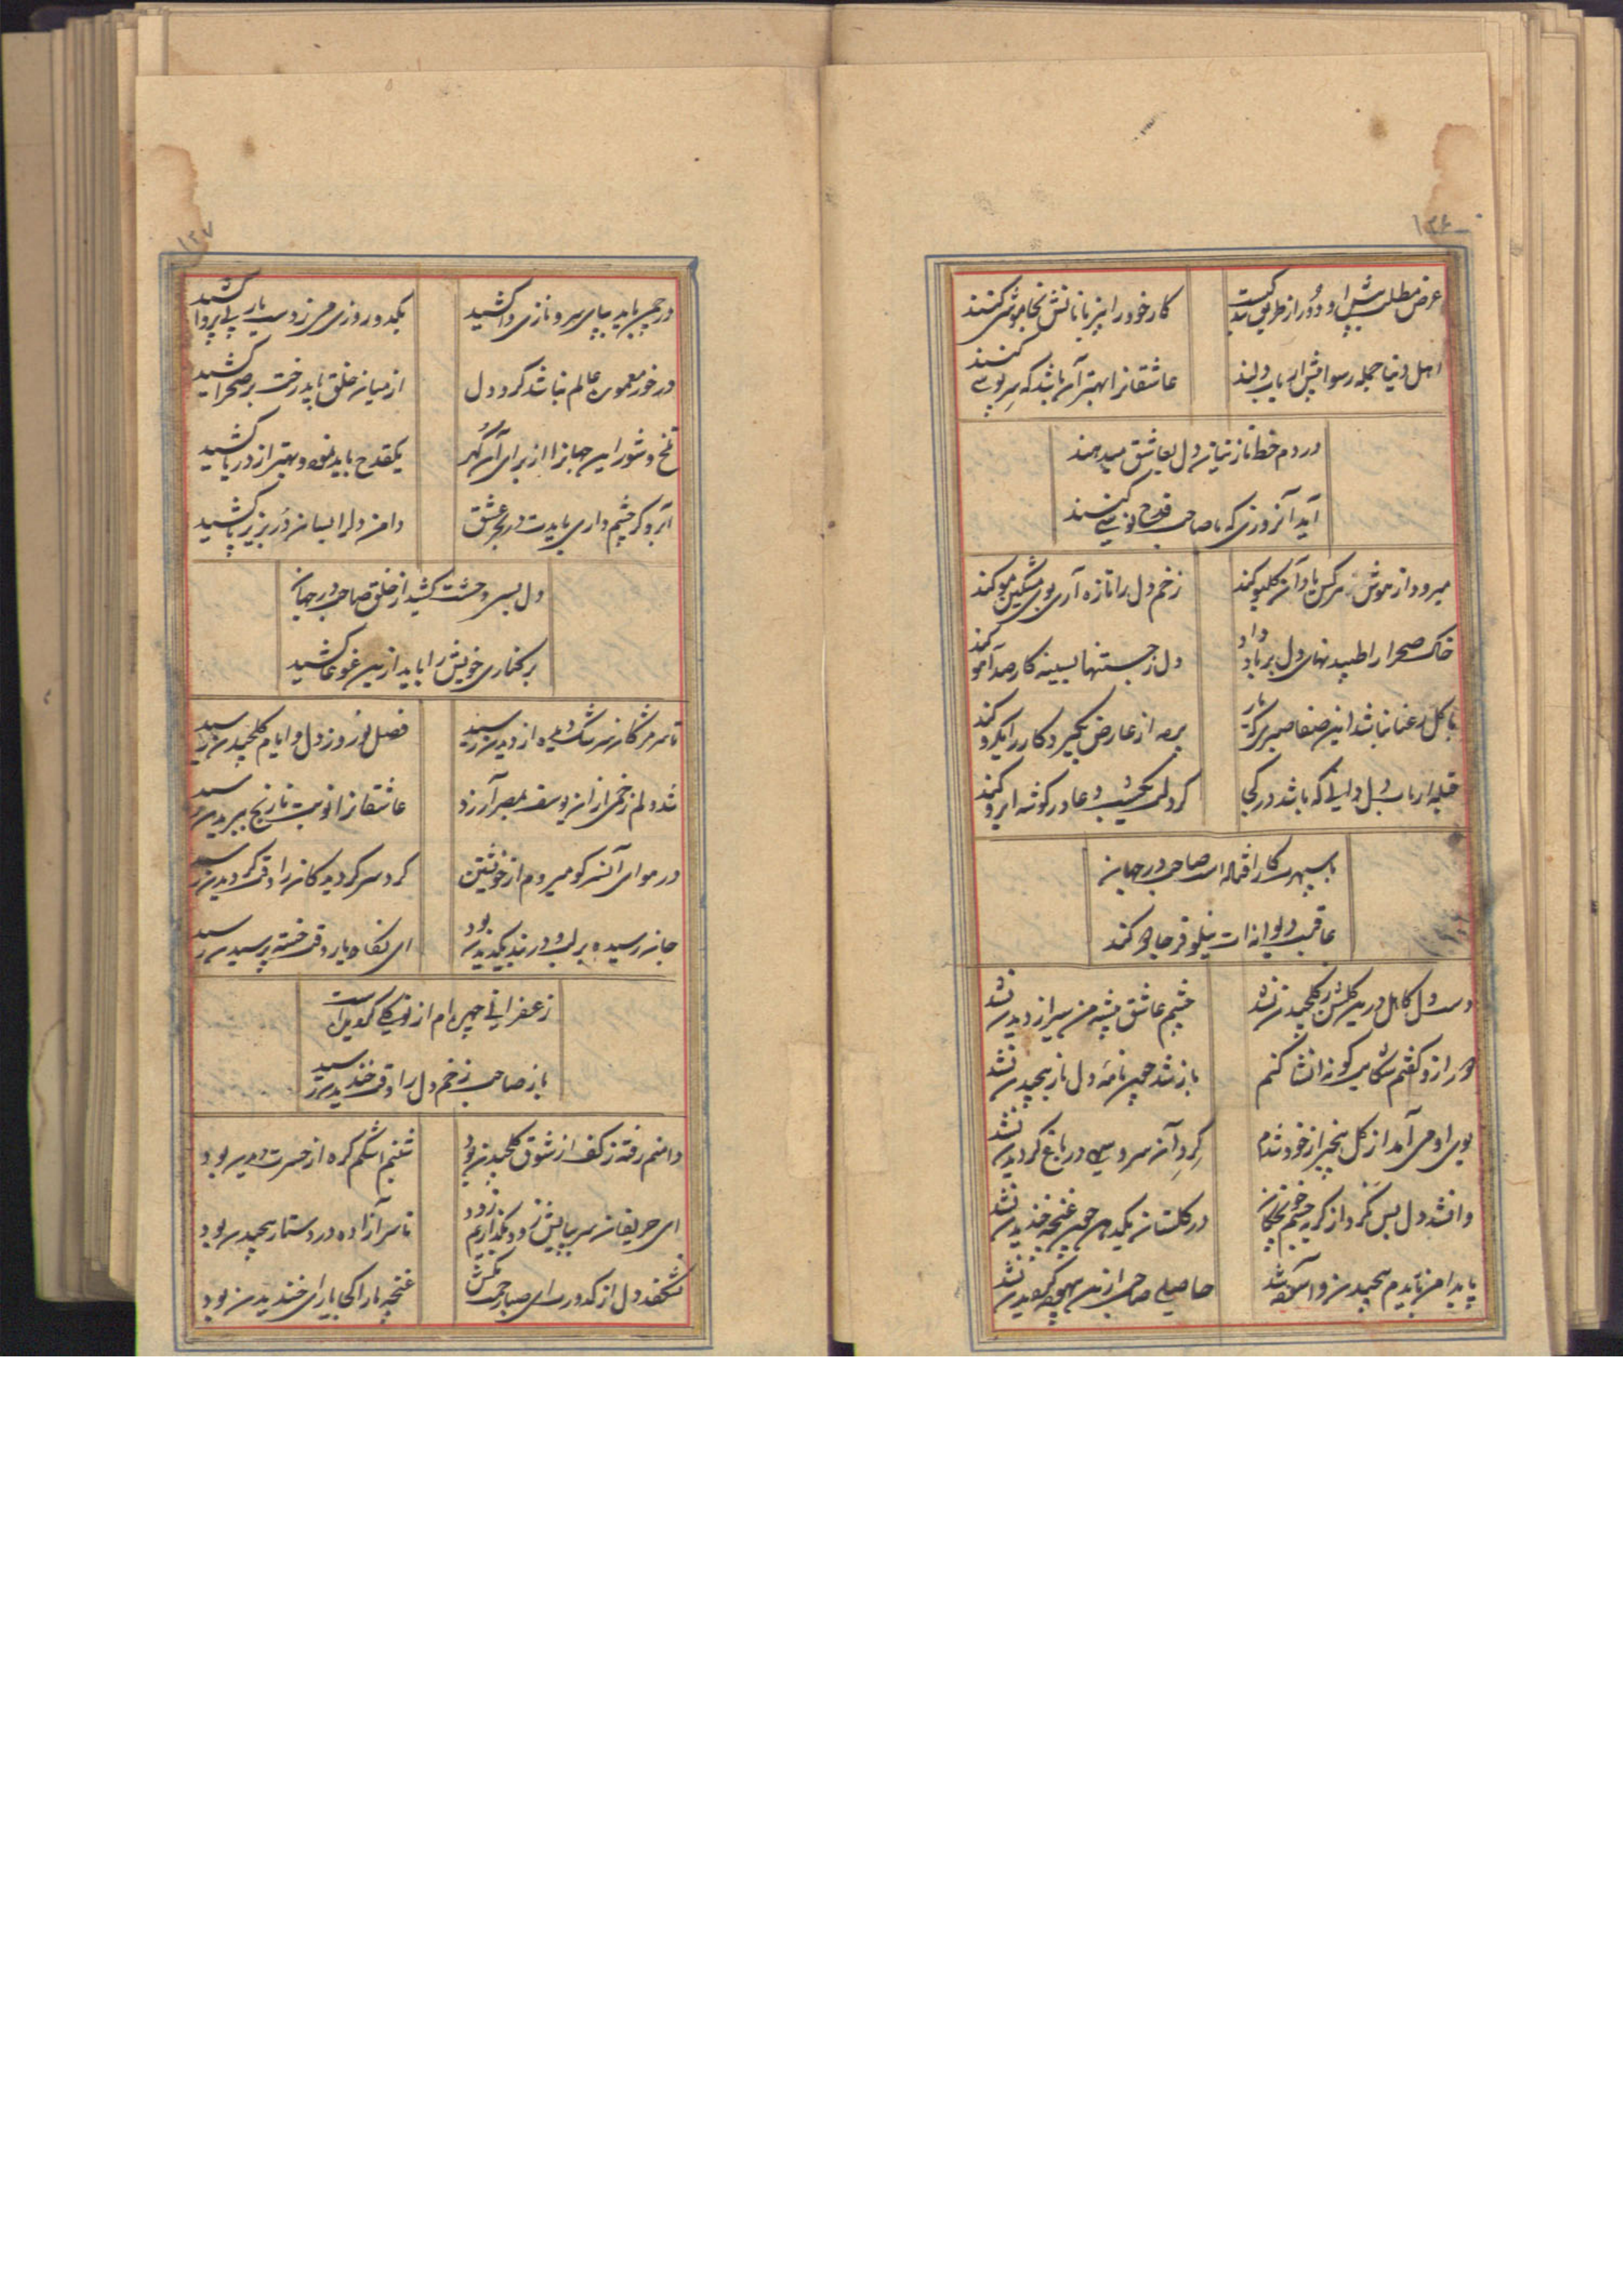 ۱۳۶
عرض مطلب پیش او دور از طریق
کار خود را بی‌زبانانش بخاموشی کنند
اهل دنیا جمله رسوا پیش ارباب دلند
عاشقانرا بهتر آن باشد که سرپوشی کنند
در دم خط نازنینان دل بعاشق میدهند
آید آنروزی که با صاحب قدح نوشی کنند
میرود از هوش هر کس یاد آن گلبو کند
زخم دل را تازه آری بوی مشکین مو کند
خاک صحرا را طپیدنهای دل بر باد داد
دل ز جستنها بسینه کار صد آهو کند
با گل رعنا نباشد اینصفا
بوسه از عارض بگیرد کار را یکرو کند
قبله ارباب دل دانی که باشد در کجا
گر دلت دعا در گوشه ابرو کند
با سپهرت کار افتاده است صاحب در جهان
عاقبت دیوانه‌ات نیلوفر جادو کند
دست دل کامل درین گلشن ز گلچیدن نشد
چشم عاشق پیشه من سیر از دیدن نشد
از و گفتم شکایت گونه انشا کنم
باز شد چون نامه دل باز پیچیدن نشد
بوی او می‌آمد از گل بیخبر از خود شدم
گرد آن سرو سهی در باغ گردیدن نشد
وا نشد دل بس که کرد از گریه چشم
در گلستان یکدهن چون غنچه خندیدن نشد
پا بدامن پیچیدن و
حاصلی صاحب ازین نشد
۱۳۷
در چمن باید بپای سرو نازی وا کشید
یکدو روزی می ز دست یار بی‌پروا کشید
در خور معموری عالم نباشد گرد دل
از میان خلق باید رخت بر صحرا کشید
تلخ و شور این جهانرا از برای آن گهر
یکقدح باید نمود و بهتر از دریا کشید
آبرو گر چشم داری بایدت در بحر عشق
دامن دل را بسان در بزیر پا کشید
دل بسی وحشت کشید از خلق صاحب در جهان
بر کناری خویش را باید ازین غوغا کشید
تا سر مژگان سرشک از دیدن رسید
فصل نوروز دل و ایام گلچیدن رسید
شد دلم زخمی از آن یوسف بمصر آرزو
عاشقانرا نوبت نارنج ببریدن رسید
در هوای آنسر کو میروم از خویشتن
گرد سر گردیدگان را وقت گردیدن رسید
جان رسیده بر لب و در بند یکدیدن بود
ای نگاه یار وقت خسته پرسیدن رسید
زعفرانی چهره‌ام از
باز صاحب زخم دل را وقت خندیدن رسید
دامنم رفته ز کف از شوق گلچیدن بود
شبنم اشکم گره از حسرت دیدن بود
ای حریفان سر بپایش زود بگذاریم زود
تا سر آزاده در دستار پیچیدن بود
نشکفد دل از کدورت ای صبا زحمت مکش
غنچه ما را کجا یارای خندیدن بود